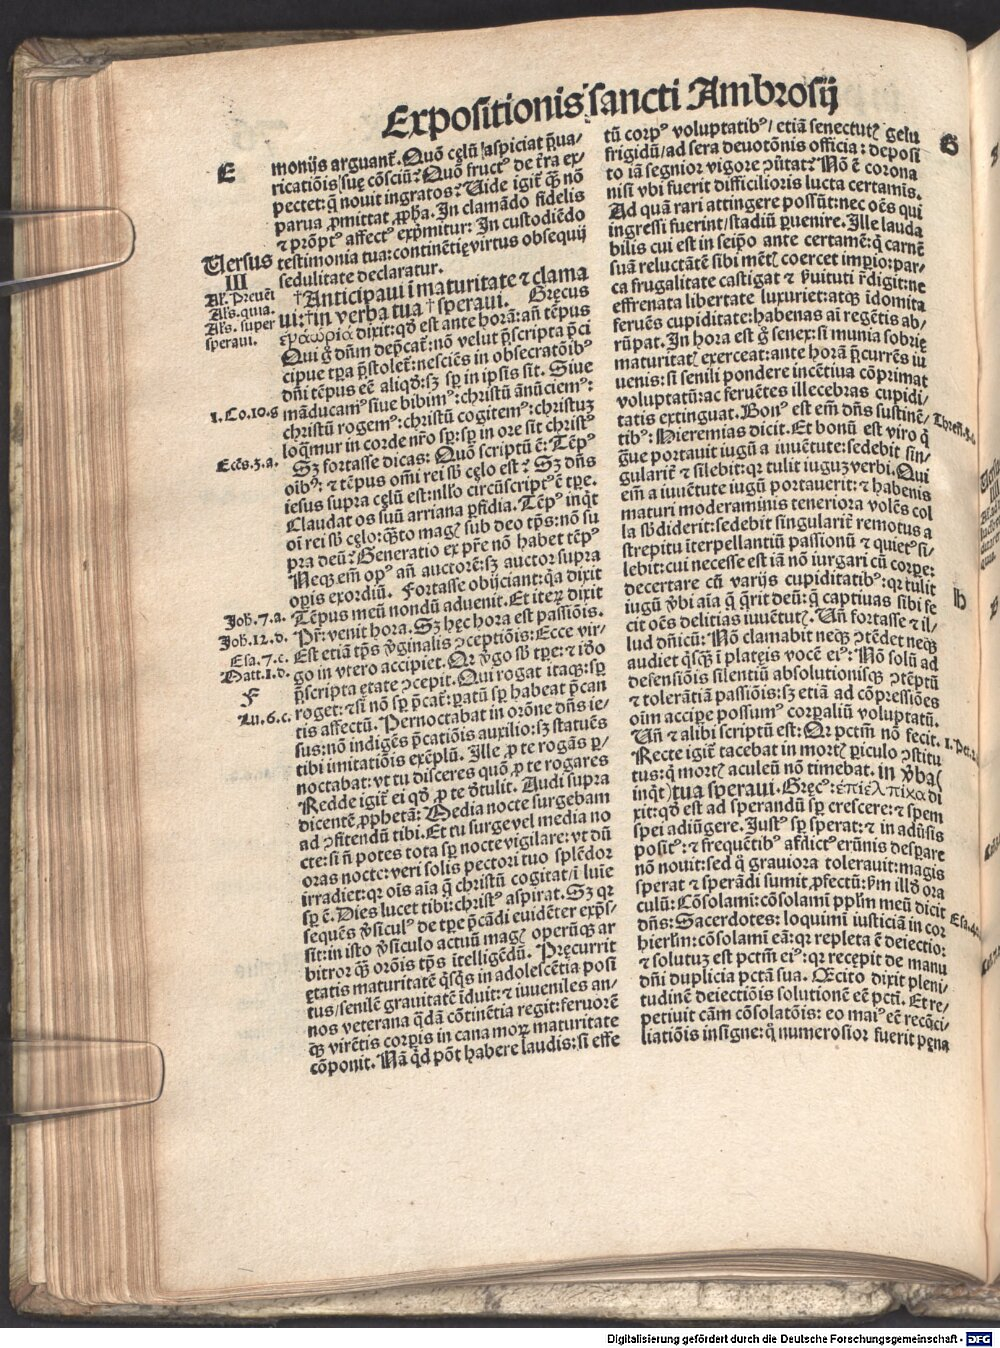 Expositionis sancti Ambrosij
E
monijs arguant᷑. Quō cęlū aspiciat p̄ua-
ricatiōis suę cōsciū? Quō fruct⁹ de t̄ra ex-
pectet: q̄ nouit ingratos? Uide igit᷑ qꝫ nō
parua ꝓmittat ꝓph̄a. In clamādo fidelis
⁊ prōpt⁹ affect⁹ exp̄mitur: In custodiēdo
testimonia tua: continētię virtus obsequij
sedulitate declaratur.
Uersus
III
Al'. Preuēi
Al's. quia.
Al's. super
speraui.
†Anticipaui ī maturitate ⁊ clama
ui: †in verba tua †speraui. Gręcus
ἐραωρία dixit: qd̄ est ante horā: añ tēpus
Qui ḡ dn̄m dep̄cat᷑: nō velut p̄scripta p̄ci
cipue tp̄a p̄stolet᷑: nesciēs in obsecratōib⁹
dn̄i tēpus eē aliqd̄: sꝫ sp̄ in ipsis sit. Siue
1. Co. 10. g
māducam⁹ siue bibim⁹: christū ānūciem⁹:
christū rogem⁹: christū cogitem⁹: christuꝫ
loq̄mur in corde nr̄o sp̄: sp̄ in ore sit christ⁹
Eccs. 3. a.
Sꝫ fortasse dicas: Quō scriptū ē: Tēp⁹
oīb⁹: ⁊ tēpus om̄i rei sb̄ cęlo est? Sꝫ dn̄s
iesus supra cęlū est: nll'o circūscript⁹ ē tp̄e.
Claudat os suū arriana ꝑfidia. Tēp⁹ inq̄t
oī rei sb̄ cęlo: qꝫto magꝭ sub deo tp̄s: nō su
pra deū? Generatio ex pr̄e nō habet tēp⁹
Neqꝫ em̄ op⁹ añ auctorē: sꝫ auctor supra
opis exordiū. Fortasse obijciant: q̄a dixit
Joh. 7. a.
Tēpus meū nondū aduenit. Et iteꝝ dixit
Joh. 12. d.
Pr̄: venit hora. Sꝫ hęc hora est passiōis.
Esa. 7. c.
Est etiā tp̄s v̄ginalis ꝯceptiōis: Ecce vir-
Matt. 1. d.
go in vtero accipiet. Qr v̄go sb̄ tp̄e: ⁊ iō
F
p̄scripta ętate ꝯcepit. Qui rogat itaqꝫ: sp̄
roget: ⁊ si nō sp̄ p̄cat᷑: ꝑatū sp̄ habeat p̄can
Lu. 6. c.
tis affectū. Pernoctabat in orōne dn̄s ie-
sus: nō indigēs p̄catiōis auxilio: sꝫ statuēs
tibi imitatiōis exēplū. Ille ꝓ te rogās ꝑ-
noctabat: vt tu disceres quō ꝓ te rogares
Redde igit᷑ ei qd̄ ꝓ te d̄tulit. Audi supra
dicentē ꝓphetā: Media nocte surgebam
ad ꝯfitendū tibi. Et tu surge vel media no
cte: si ñ potes tota sp̄ nocte vigilare: vt dū
oras nocte: veri solis pectori tuo splēdor
irradiet: qr oīs aīa q̄ christū cogitat/ ī luīe
sp̄ ē. Dies lucet tibi: christ⁹ aspirat. Sꝫ qr
sequēs v̄sicul⁹ de tp̄e p̄cādi euidēter exp̄s-
sit: in isto v̄siculo actuū magꝭ operūqꝫ ar
bitror qꝫ orōis tp̄s itelligēdū. Pręcurrit
ętatis maturitatē q̄sqꝫ in adolescētia posi
tus/ senilē grauitatē īduit: ⁊ iuueniles an-
nos veterana q̄dā cōtinētia regit: feruorē
qꝫ virētis corpis in cana moꝝ maturitate
cōponit. Nā qd̄ pōt habere laudis: si effe
G
tū corp⁹ voluptatib⁹/ etiā senectutꝭ gelu
frigidū/ ad sera deuotōnis officia: deposi
to iā segnior vigore ꝯūtat? Nō ē corona
nisi vbi fuerit difficilioris lucta certamis.
Ad quā rari attingere possūt: nec oēs qui
ingressi fuerint/ stadiū ꝑuenire. Ille lauda
bilis cui est in seip̄o ante certamē: q̄ carnē
suā reluctātē sibi mētꝭ coercet imꝑio: par-
ca frugalitate castigat ⁊ v̄uituti r̄digit: ne
effrenata libertate luxuriet: atqꝫ īdomita
feruēs cupiditate: habenas aī regētis ab/
rūpat. In hora est ḡ senex: si munia sobrię
maturitatꝭ exerceat: ante horā p̄currēs iu
uenis: si senili pondere incētiua cōprimat
voluptatū: ac feruētes illecebras cupidi/
tatis extinguat. Bon⁹ est em̄ dn̄s sustinē/
Thren. 3. c.
tib⁹: Hieremias dicit. Et bonū est viro q̄
g̃ue portauit iugū a iuuētute: sedebit sin-
gularit᷑ ⁊ silebit: qr tulit iuguꝫ verbi. Qui
em̄ a iuuētute iugū portauerit: ⁊ habenis
maturi moderaminis teneriora volēs col
la sb̄diderit: sedebit singularit᷑ remotus a
strepitu īterpellantiū passionū ⁊ quiet⁹ si/
lebit: cui necesse est iā nō iurgari cū corꝑe:
H
decertare cū varijs cupiditatib⁹: qr tulit
iugū v̄bi aīa q̄ q̄rit deū: q̄ captiuas sibi fe
cit oēs delitias iuuētutꝭ. Uñ fortasse ⁊ il-
lud dn̄icū: Nō clamabit neqꝫ ꝯtēdet neqꝫ
audiet q̄sqꝫ ī platęis vocē ei⁹: Nō solū ad
defensiōis silentiū absolutionisqꝫ ꝯtēptū
⁊ tolerātiā passiōis: sꝫ etiā ad cōpressiōes
oīm accipe possum⁹ corꝑaliū voluptatū.
Uñ ⁊ alibi scriptū est: Qr pctm̄ nō fecit.
1. Pet. 2.
Recte igit᷑ tacebat in mortꝭ ꝑiculo ꝯstitu
tus: q̄ mortꝭ aculeū nō timebat. in v̄ba(
inq̄t) tua speraui. Gręc⁹: ἐπιελπίκα di
xit: qd̄ est ad sperandū sp̄ crescere: ⁊ spem
spei adiūgere. Just⁹ sp̄ sperat: ⁊ in adūsis
posit⁹: ⁊ frequētib⁹ afdict⁹ erūnis desp̄are
nō nouit: sed q̄ grauiora tolerauit: magis
sperat ⁊ sperādi sumit ꝓfectū: p̄m ill'd ora
culū: Cōsolami: cōsolamī pplm̄ meū dicit
Esa. 40.
dn̄s: Sacerdotes: loquimī iusticiā in cor
hierl'm: cōsolamī eā: qr repleta ē deiectiōe:
⁊ solutuꝫ est pctm̄ ei⁹: qr recępit de manu
dn̄i duplicia pctā sua. Cito dixit pleni-
tudinē deiectiōis solutionē eē pctī. Et re-
petiuit cām cōsolatōis: eo mai⁹ eē recq̄ci-
liatiōis insigne: q̄ numerosior fuerit pęna
Digitalisierung gefördert durch die Deutsche Forschungsgemeinschaft - DFG